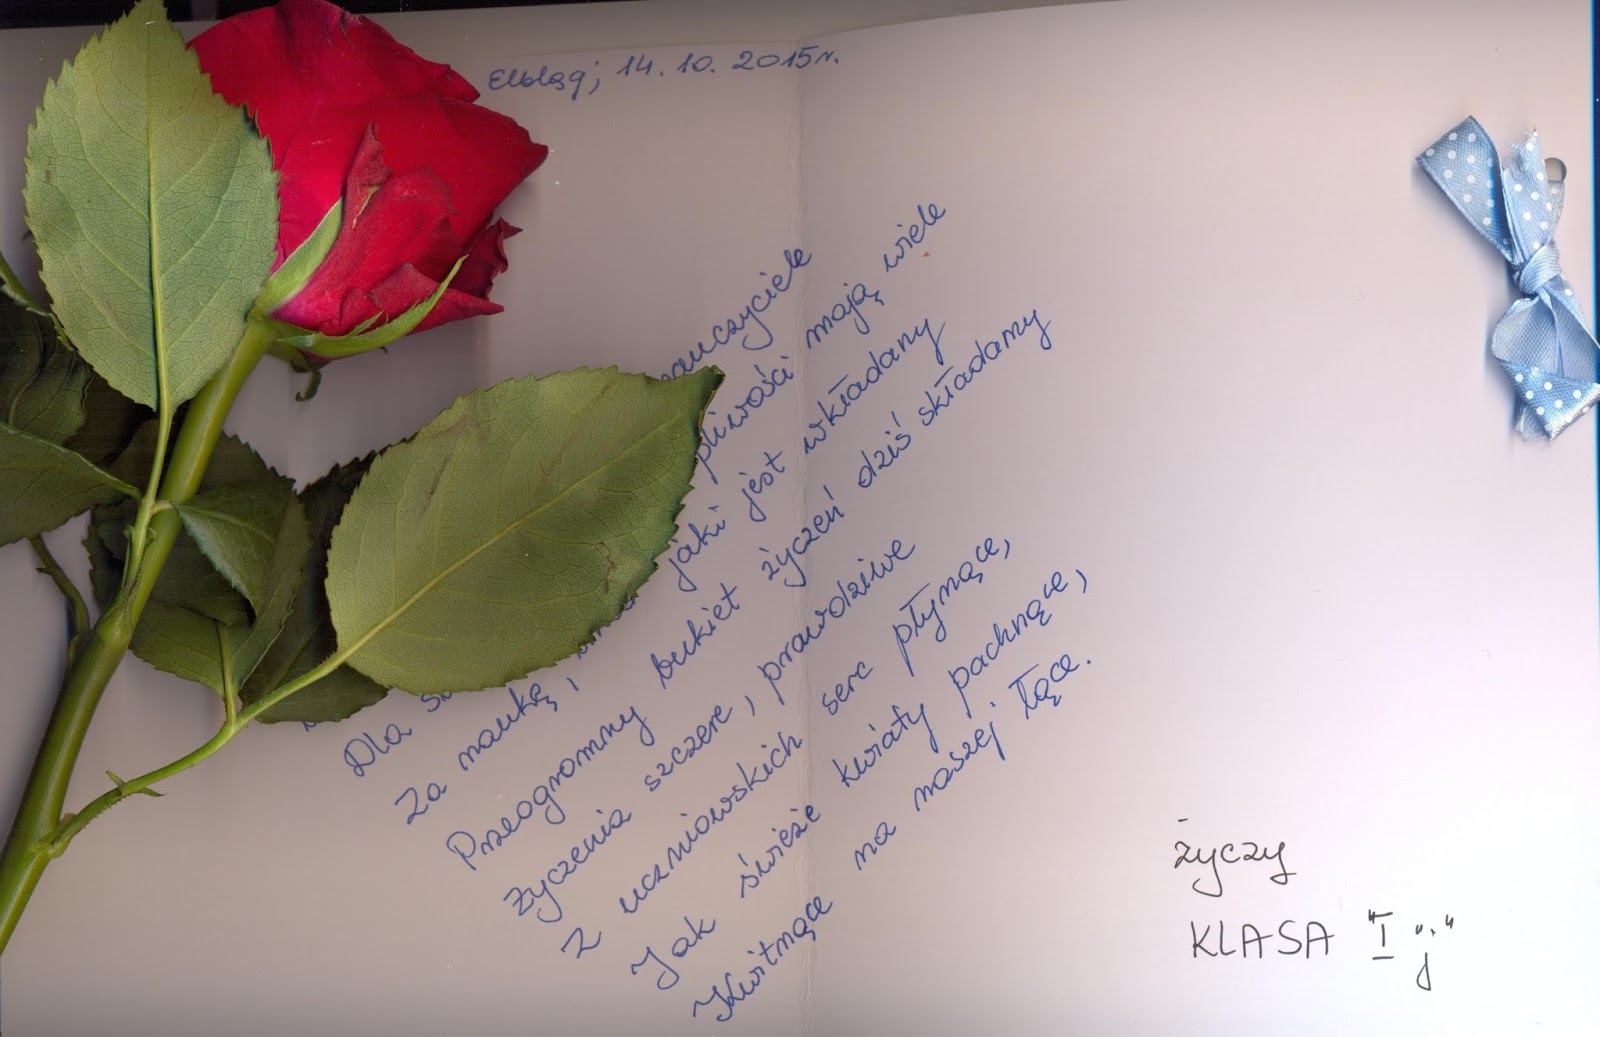 Elbląg, 14.10.2015r.
nauczyciele
Dla pliwości mają wiele
Za naukę, i jaki jest wkładany
Przeogromny bukiet życzeń dziś składamy
Życzenia szczere, prawdziwe
Z uczniowskich serc płynące,
Jak świeże kwiaty pachnące,
Kwitnące na naszej łące.
życzy
KLASA "I j"